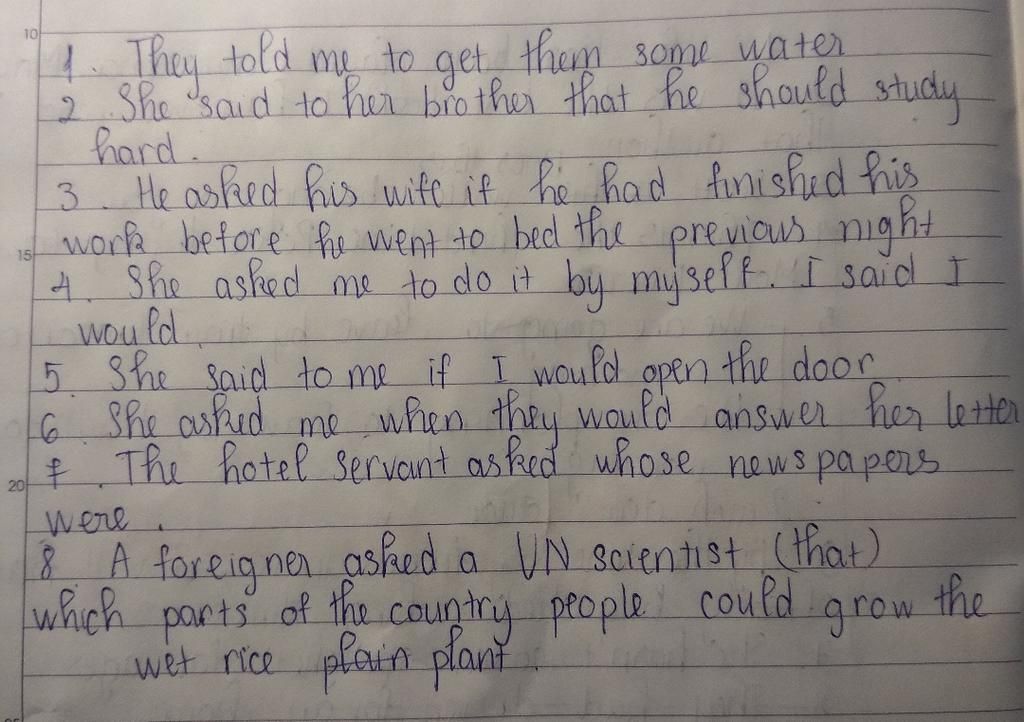 10
1. They told me to get them some water
2 She said to her brother that he should study
hard.
3. He asked his wife if he had finished his
work before he went to bed the previous night
15
4. She asked me to do it by myself. I said I
would.
5. She said to me if I would open the door
6. She asked me when they would answer her letter
7. The hotel servant asked whose newspapers
20
were.
8 A foreigner asked a VN scientist (that)
which parts of the country people could grow the
wet rice plain plant.